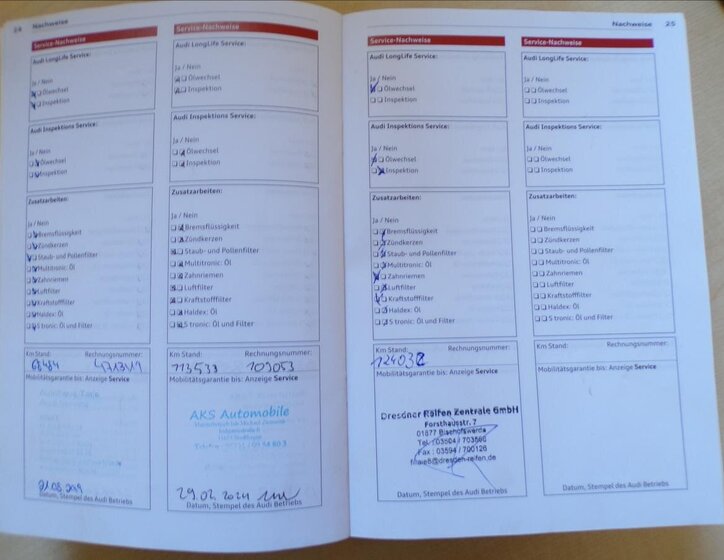 24 Nachweise
Service-Nachweise
Audi LongLife Service:
Ja / Nein
Ölwechsel
Inspektion
Audi Inspektions Service:
Ja / Nein
Ölwechsel
Inspektion
Zusatzarbeiten:
Ja / Nein
Bremsflüssigkeit
Zündkerzen
Staub- und Pollenfilter
Multitronic: Öl
Zahnriemen
Luftfilter
Kraftstofffilter
Haldex: Öl
S tronic: Öl und Filter
Km Stand: Rechnungsnummer:
Mobilitätsgarantie bis: Anzeige Service
Datum, Stempel des Audi Betriebs
Service-Nachweise
Audi LongLife Service:
Ja / Nein
Ölwechsel
Inspektion
Audi Inspektions Service:
Ja / Nein
Ölwechsel
Inspektion
Zusatzarbeiten:
Ja / Nein
Bremsflüssigkeit
Zündkerzen
Staub- und Pollenfilter
Multitronic: Öl
Zahnriemen
Luftfilter
Kraftstofffilter
Haldex: Öl
S tronic: Öl und Filter
Km Stand: Rechnungsnummer:
113533 103053
Mobilitätsgarantie bis: Anzeige Service
AKS Automobile
Datum, Stempel des Audi Betriebs
Nachweise 25
Service-Nachweise
Audi LongLife Service:
Ja / Nein
Ölwechsel
Inspektion
Audi Inspektions Service:
Ja / Nein
Ölwechsel
Inspektion
Zusatzarbeiten:
Ja / Nein
Bremsflüssigkeit
Zündkerzen
Staub- und Pollenfilter
Multitronic: Öl
Zahnriemen
Luftfilter
Kraftstofffilter
Haldex: Öl
S tronic: Öl und Filter
Km Stand: Rechnungsnummer:
124032
Mobilitätsgarantie bis: Anzeige Service
Dresdner Reifen Zentrale GmbH
Forsthausstr. 7
01877 Bischofswerda
Tel.: 03594 / 703560
Fax : 03594 / 700126
filiale8@dresden-reifen.de
Datum, Stempel des Audi Betriebs
Service-Nachweise
Audi LongLife Service:
Ja / Nein
Ölwechsel
Inspektion
Audi Inspektions Service:
Ja / Nein
Ölwechsel
Inspektion
Zusatzarbeiten:
Ja / Nein
Bremsflüssigkeit
Zündkerzen
Staub- und Pollenfilter
Multitronic: Öl
Zahnriemen
Luftfilter
Kraftstofffilter
Haldex: Öl
S tronic: Öl und Filter
Km Stand: Rechnungsnummer:
Mobilitätsgarantie bis: Anzeige Service
Datum, Stempel des Audi Betriebs